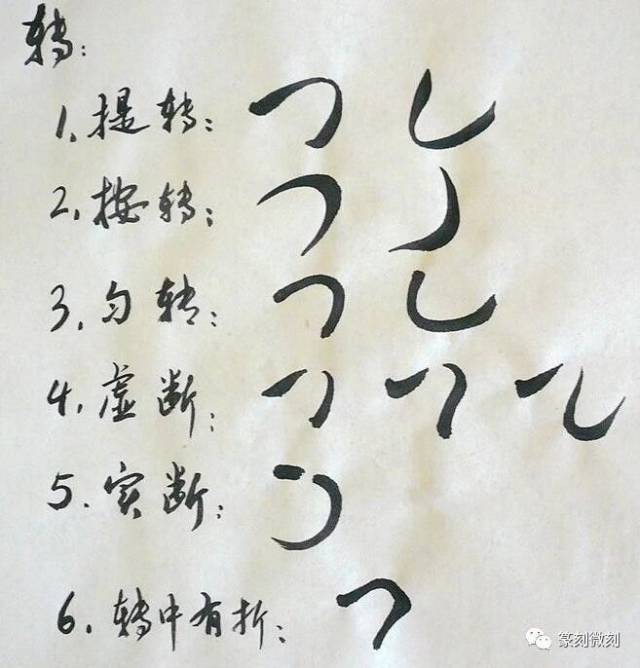 转：
1、提转：
2、按转：
3、匀转：
4、虚断：
5、实断：
6、转中有折：
篆刻微刻